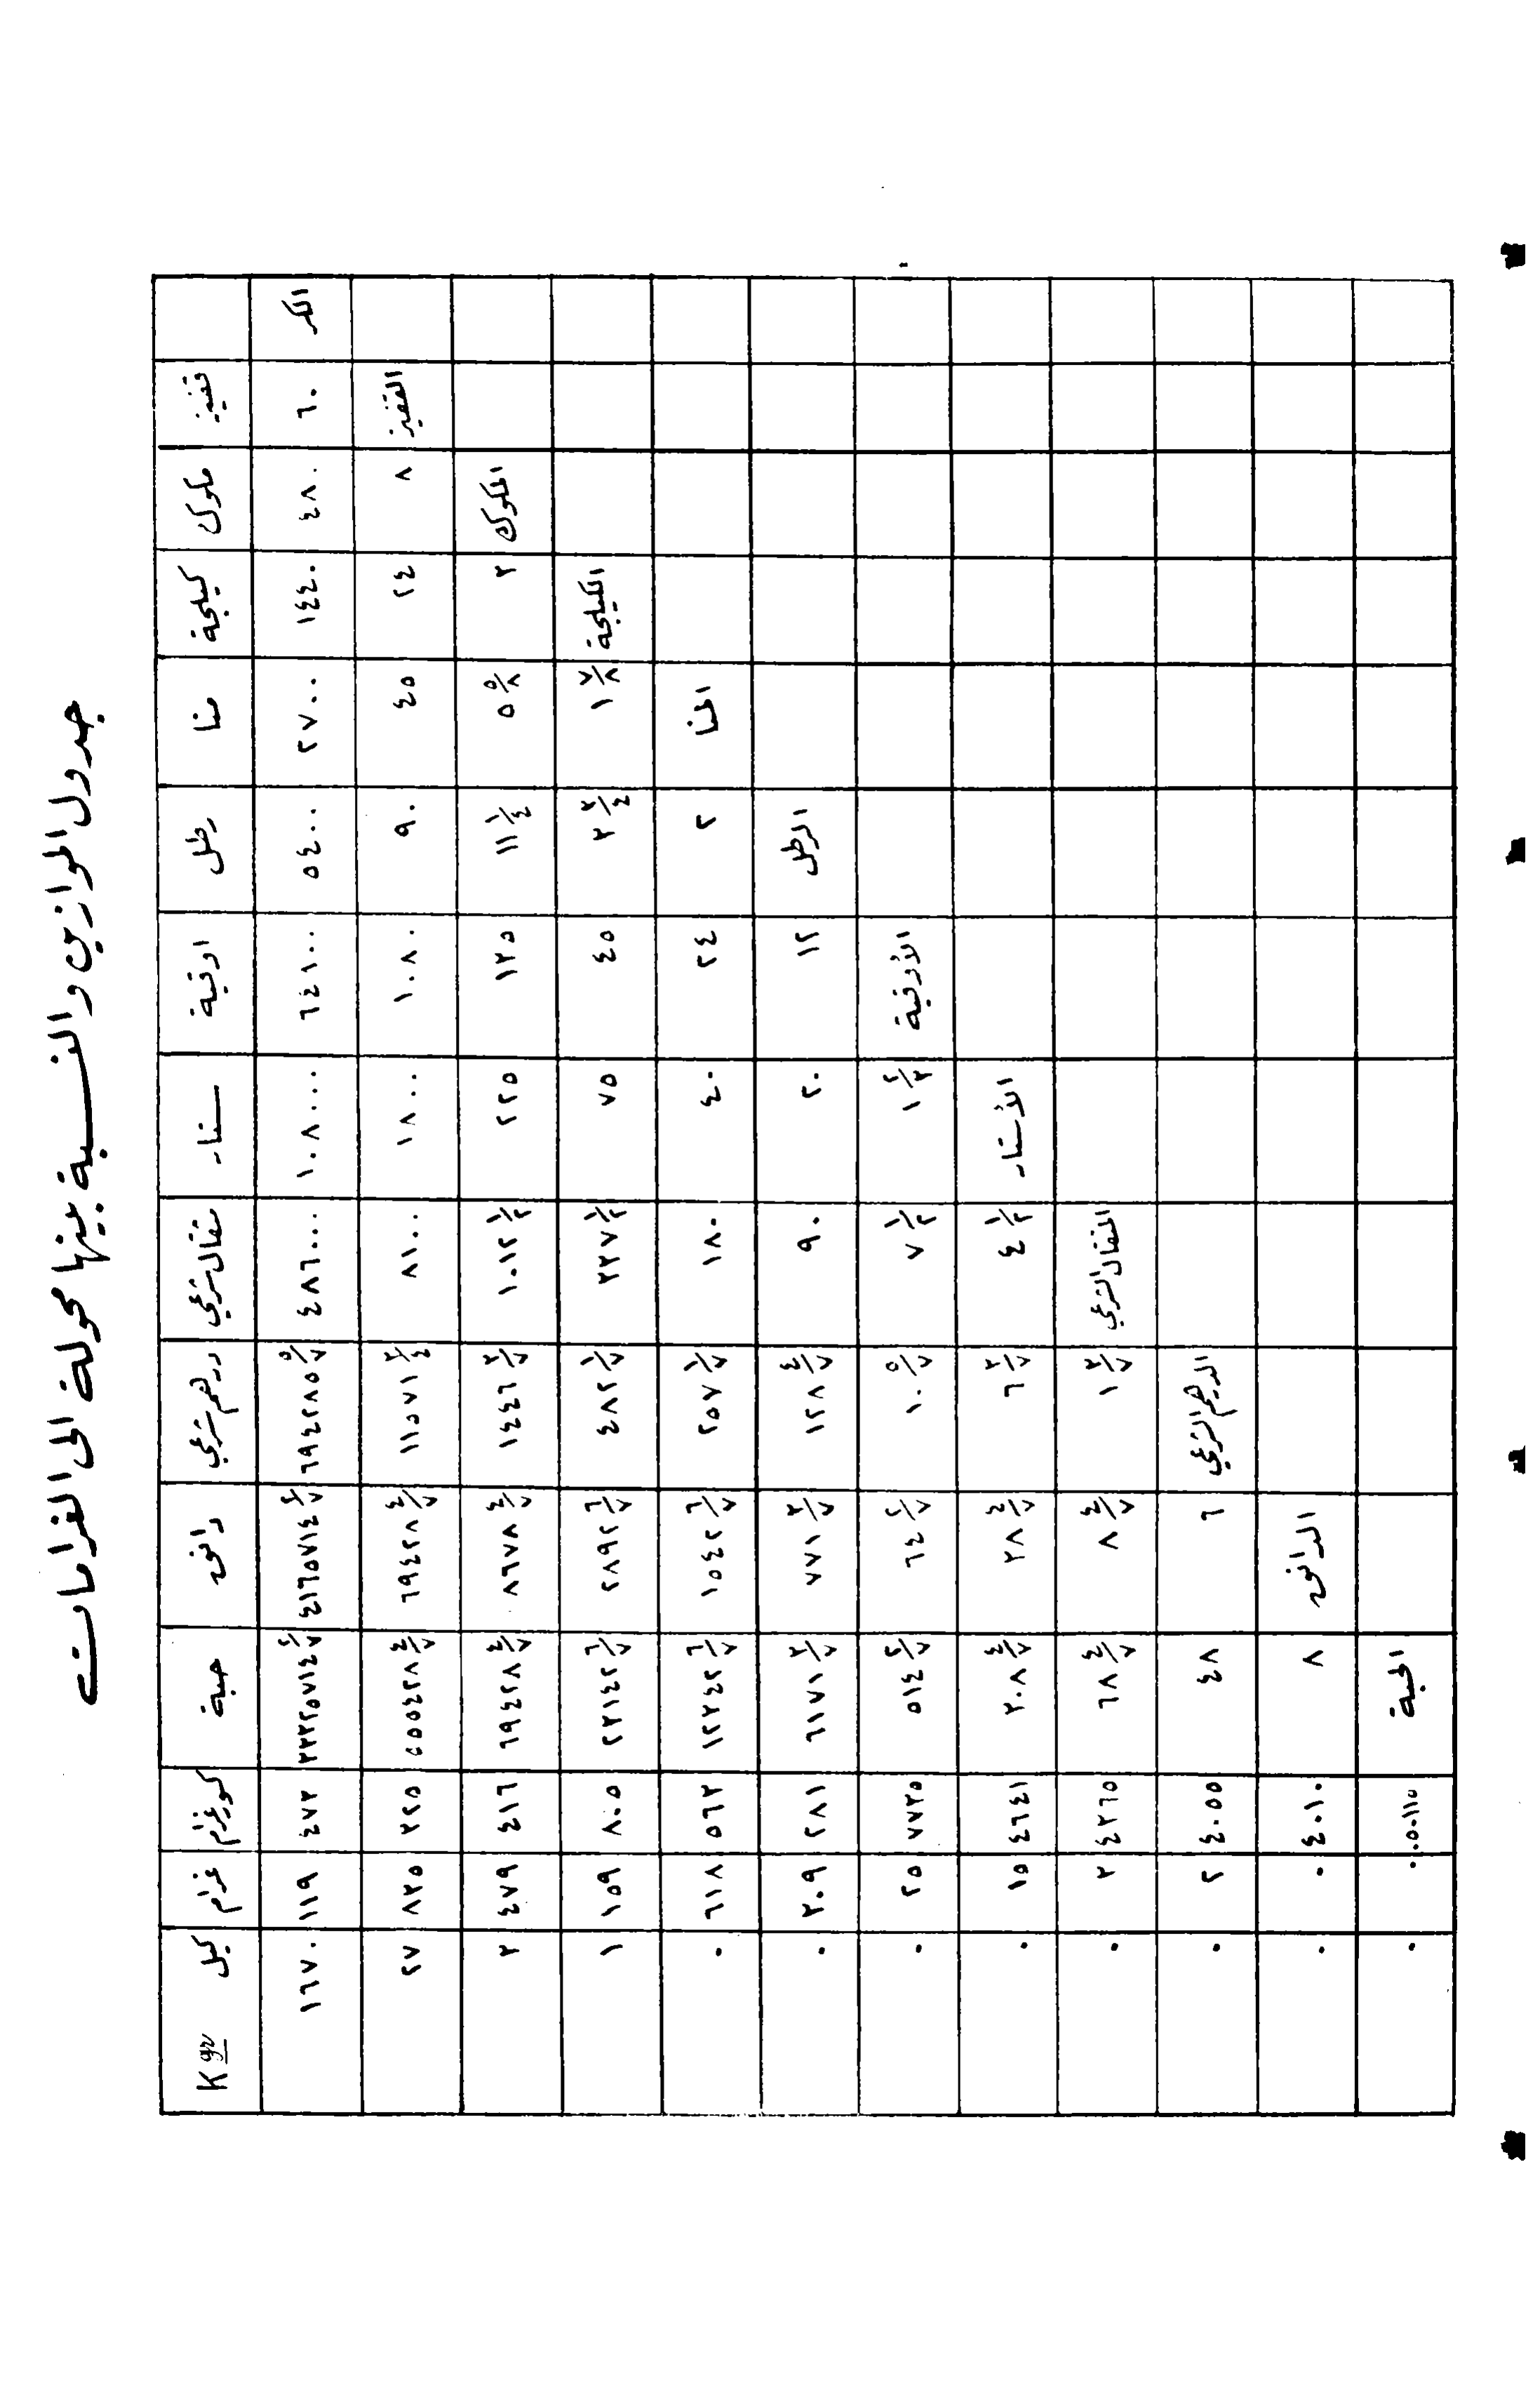 جدول الموازين والنسبة بينها محولة الى الغرامات
قفيز مكوك كيلجة منا رطل اوقية ستار مثقال شرعي درهم شرعي دانق حبة كورغرام غرام كيل Kgr
الكر ٦٠ ٤٨٠ ١٤٤٠ ٢٧٠٠ ٥٤٠٠ ٦٤٨٠٠ ١٠٨٠٠٠ ٤٨٦٠٠٠ ٦٩٤٢٨٥ ٥/٧ ٤١٦٥٧١٤ ٢/٧ ٣٣٣٢٥٧١٤ ٢/٧ ٤٧٣ ١١٩ ١٦٧٠
القفيز ٨ ٢٤ ٤٥ ٩٠ ١٠٨٠ ١٨٠٠ ٨١٠٠ ١١٥٧١ ٣/٤ ٦٩٤٢٨ ٤/٧ ٥٥٥٤٢٨ ٤/٧ ٣٢٥ ٨٣٥ ٢٧
المكوك ٣ ٥ ٥/٨ ١١ ١/٤ ١٣٥ ٢٢٥ ١٠١٢ ١/٢ ١٤٤٦ ٣/٧ ٨٦٧٨ ٤/٧ ٦٩٤٢٨ ٤/٧ ٤١٦ ٤٧٩ ٣
الكيلجة ١ ٧/٨ ٣ ٣/٤ ٤٥ ٧٥ ٣٣٧ ١/٢ ٤٨٢ ١/٧ ٢٨٩٢ ٦/٧ ٢٣١٤٢ ٦/٧ ٨٠٥ ١٥٩ ١
المنا ٢ ٢٤ ٤٠ ١٨٠ ٢٥٧ ١/٧ ١٥٤٢ ٦/٧ ١٢٣٤٢ ٦/٧ ٥٦٣ ٦١٨ ٠
الرطل ١٢ ٢٠ ٩٠ ١٢٨ ٤/٧ ٧٧١ ٣/٧ ٦١٧١ ٣/٧ ٢٨١ ٣٠٩ ٠
الأوقية ١ ٢/٣ ٧ ١/٢ ١٠ ٥/٧ ٦٤ ٢/٧ ٥١٤ ٢/٧ ٧٧٣٥ ٢٥ ٠
الأستار ٤ ١/٢ ٦ ٣/٧ ٣٨ ٤/٧ ٣٠٨ ٤/٧ ٤٦٤١ ١٥ ٠
المثقال الشرعي ١ ٣/٧ ٨ ٤/٧ ٦٨ ٤/٧ ٤٣٦٥ ٣ ٠
الدرهم الشرعي ٦ ٤٨ ٤٠٥٥ ٢ ٠
الدانق ٨ ٤٠١٠ ٠ ٠
الحبة ٠٥٠١١٥ ٠ ٠